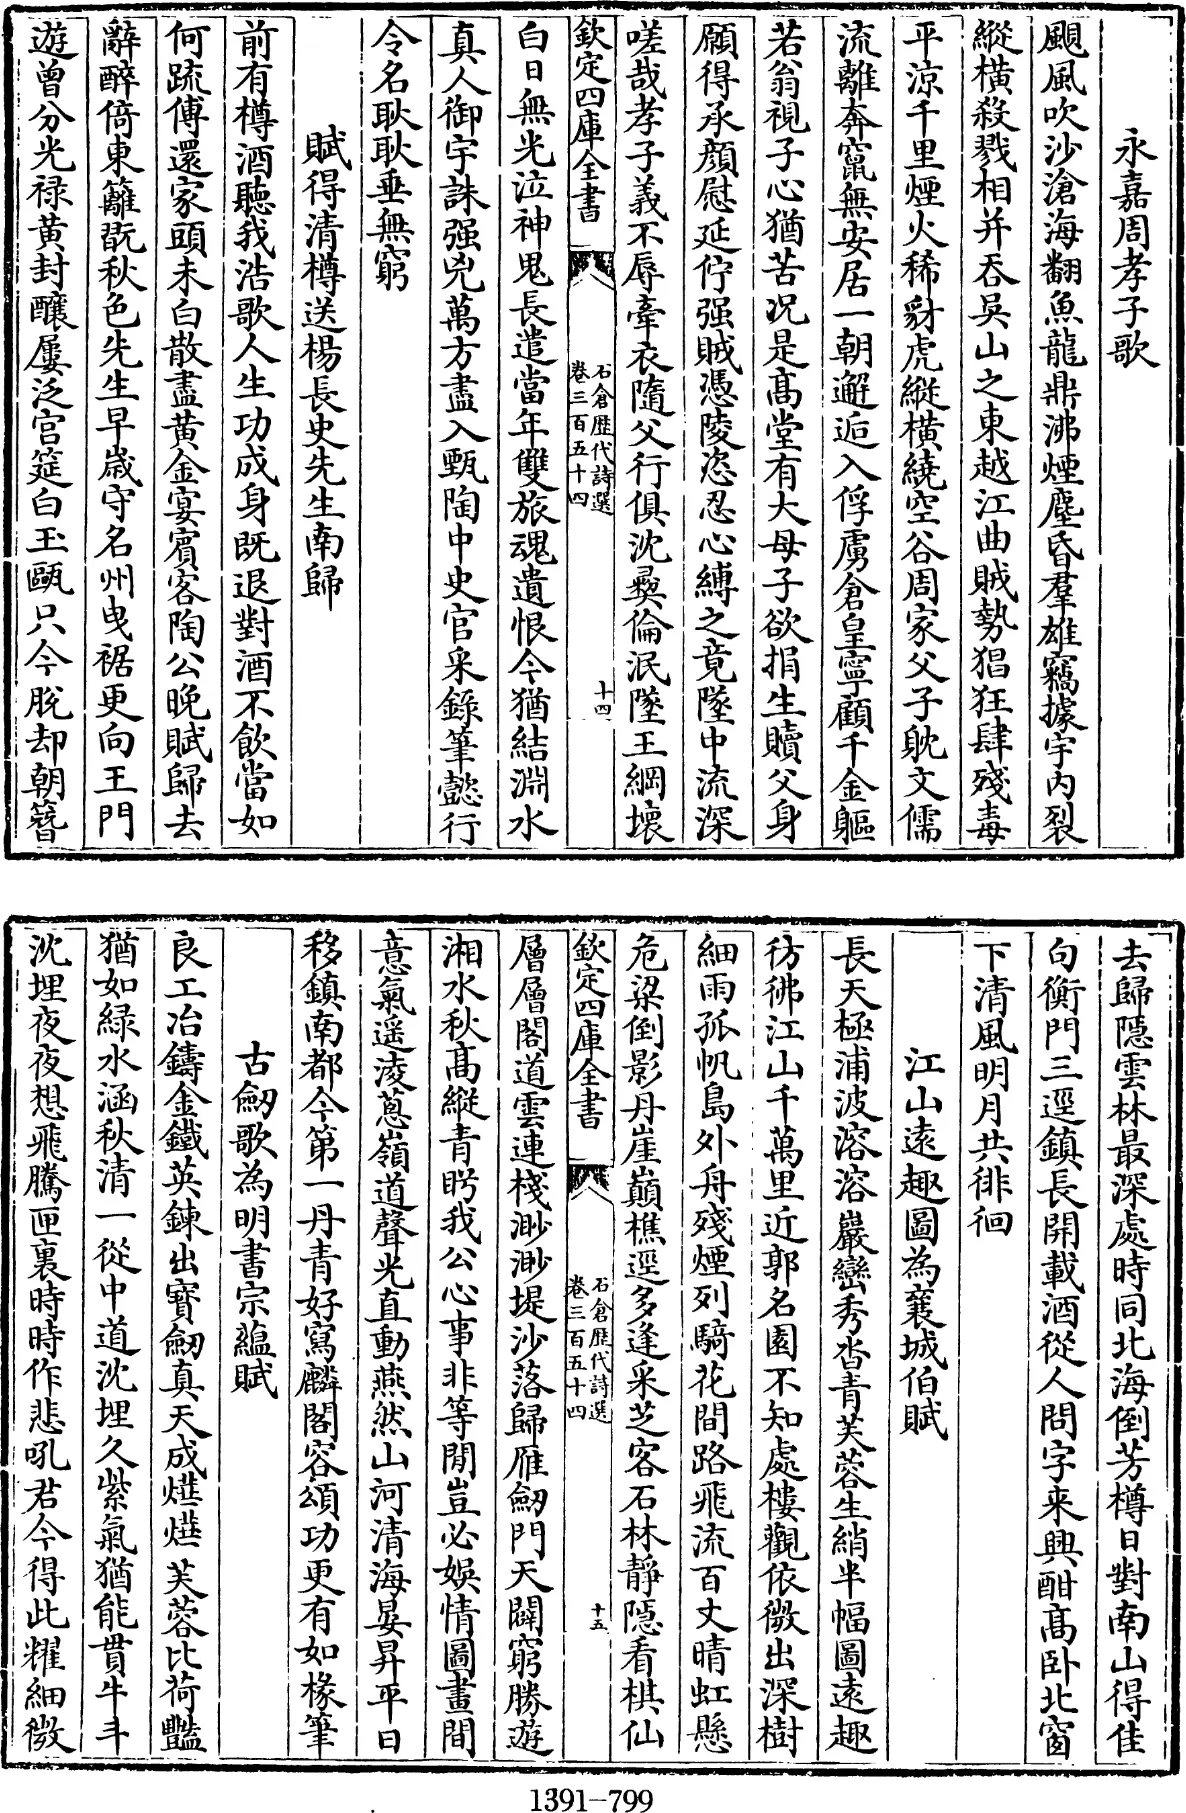 永嘉周孝子歌
颶風吹沙滄海翻魚龍鼎沸煙塵昏羣雄竊據宇內裂
縱橫殺戮相并吞吳山之東越江曲賊勢猖狂肆殘毒
平涼千里煙火稀豺虎縱橫繞空谷周家父子躭文儒
流離奔竄無安居一朝邂逅入俘虜倉皇寧顧千金軀
若翁視子心猶苦况是髙堂有大母子欲捐生贖父身
願得承顏慰延佇强賊憑陵恣忍心縛之竟墜中流深
嗟哉孝子義不辱牽衣隨父行俱沈彛倫泯墜王綱壞
欽定四庫全書
石倉歴代詩選
卷三百五十四
十四
白日無光泣神鬼長遣當年雙旅魂遺恨今猶結淵水
真人御宇誅强兇萬方盡入甄陶中史官采錄筆懿行
令名耿耿垂無窮
賦得清樽送楊長史先生南歸
前有樽酒聽我浩歌人生功成身既退對酒不飲當如
何疏傅還家頭未白散盡黃金宴賓客陶公晚賦歸去
辭醉倚東籬翫秋色先生早歲守名州曵裾更向王門
遊曾分光禄黃封釀屢泛宫筵白玉甌只今脫却朝簪
去歸隱雲林最深處時同北海倒芳樽日對南山得佳
句衡門三逕鎮長開載酒從人問字來興酣髙卧北窗
下清風明月共徘徊
江山逺趣圖為襄城伯賦
長天極浦波溶溶巖巒秀沓青芙蓉生綃半幅圖逺趣
彷彿江山千萬里近郭名園不知處樓觀依微出深樹
細雨孤帆島外舟殘煙列騎花間路飛流百丈晴虹懸
危梁倒影丹崖巔樵逕多逢采芝客石林靜隱看棋仙
欽定四庫全書
石倉歴代詩選
卷三百五十四
十五
層層閣道雲連棧渺渺堤沙落歸雁劒門天闢窮勝遊
湘水秋髙縱青眄我公心事非等閒豈必娛情圖畫間
意氣遥淩葱嶺道聲光直動燕然山河清海晏昇平日
移鎮南都今第一丹青好寫麟閣容頌功更有如椽筆
古劒歌為明書宗藴賦
良工冶鑄金鐵英鍊出寶劒真天成爗爗芙蓉比荷豔
猶如緑水涵秋清一從中道沈埋久紫氣猶能貫牛斗
沈埋夜夜想飛騰匣裏時時作悲吼君今得此耀細微
1391-799